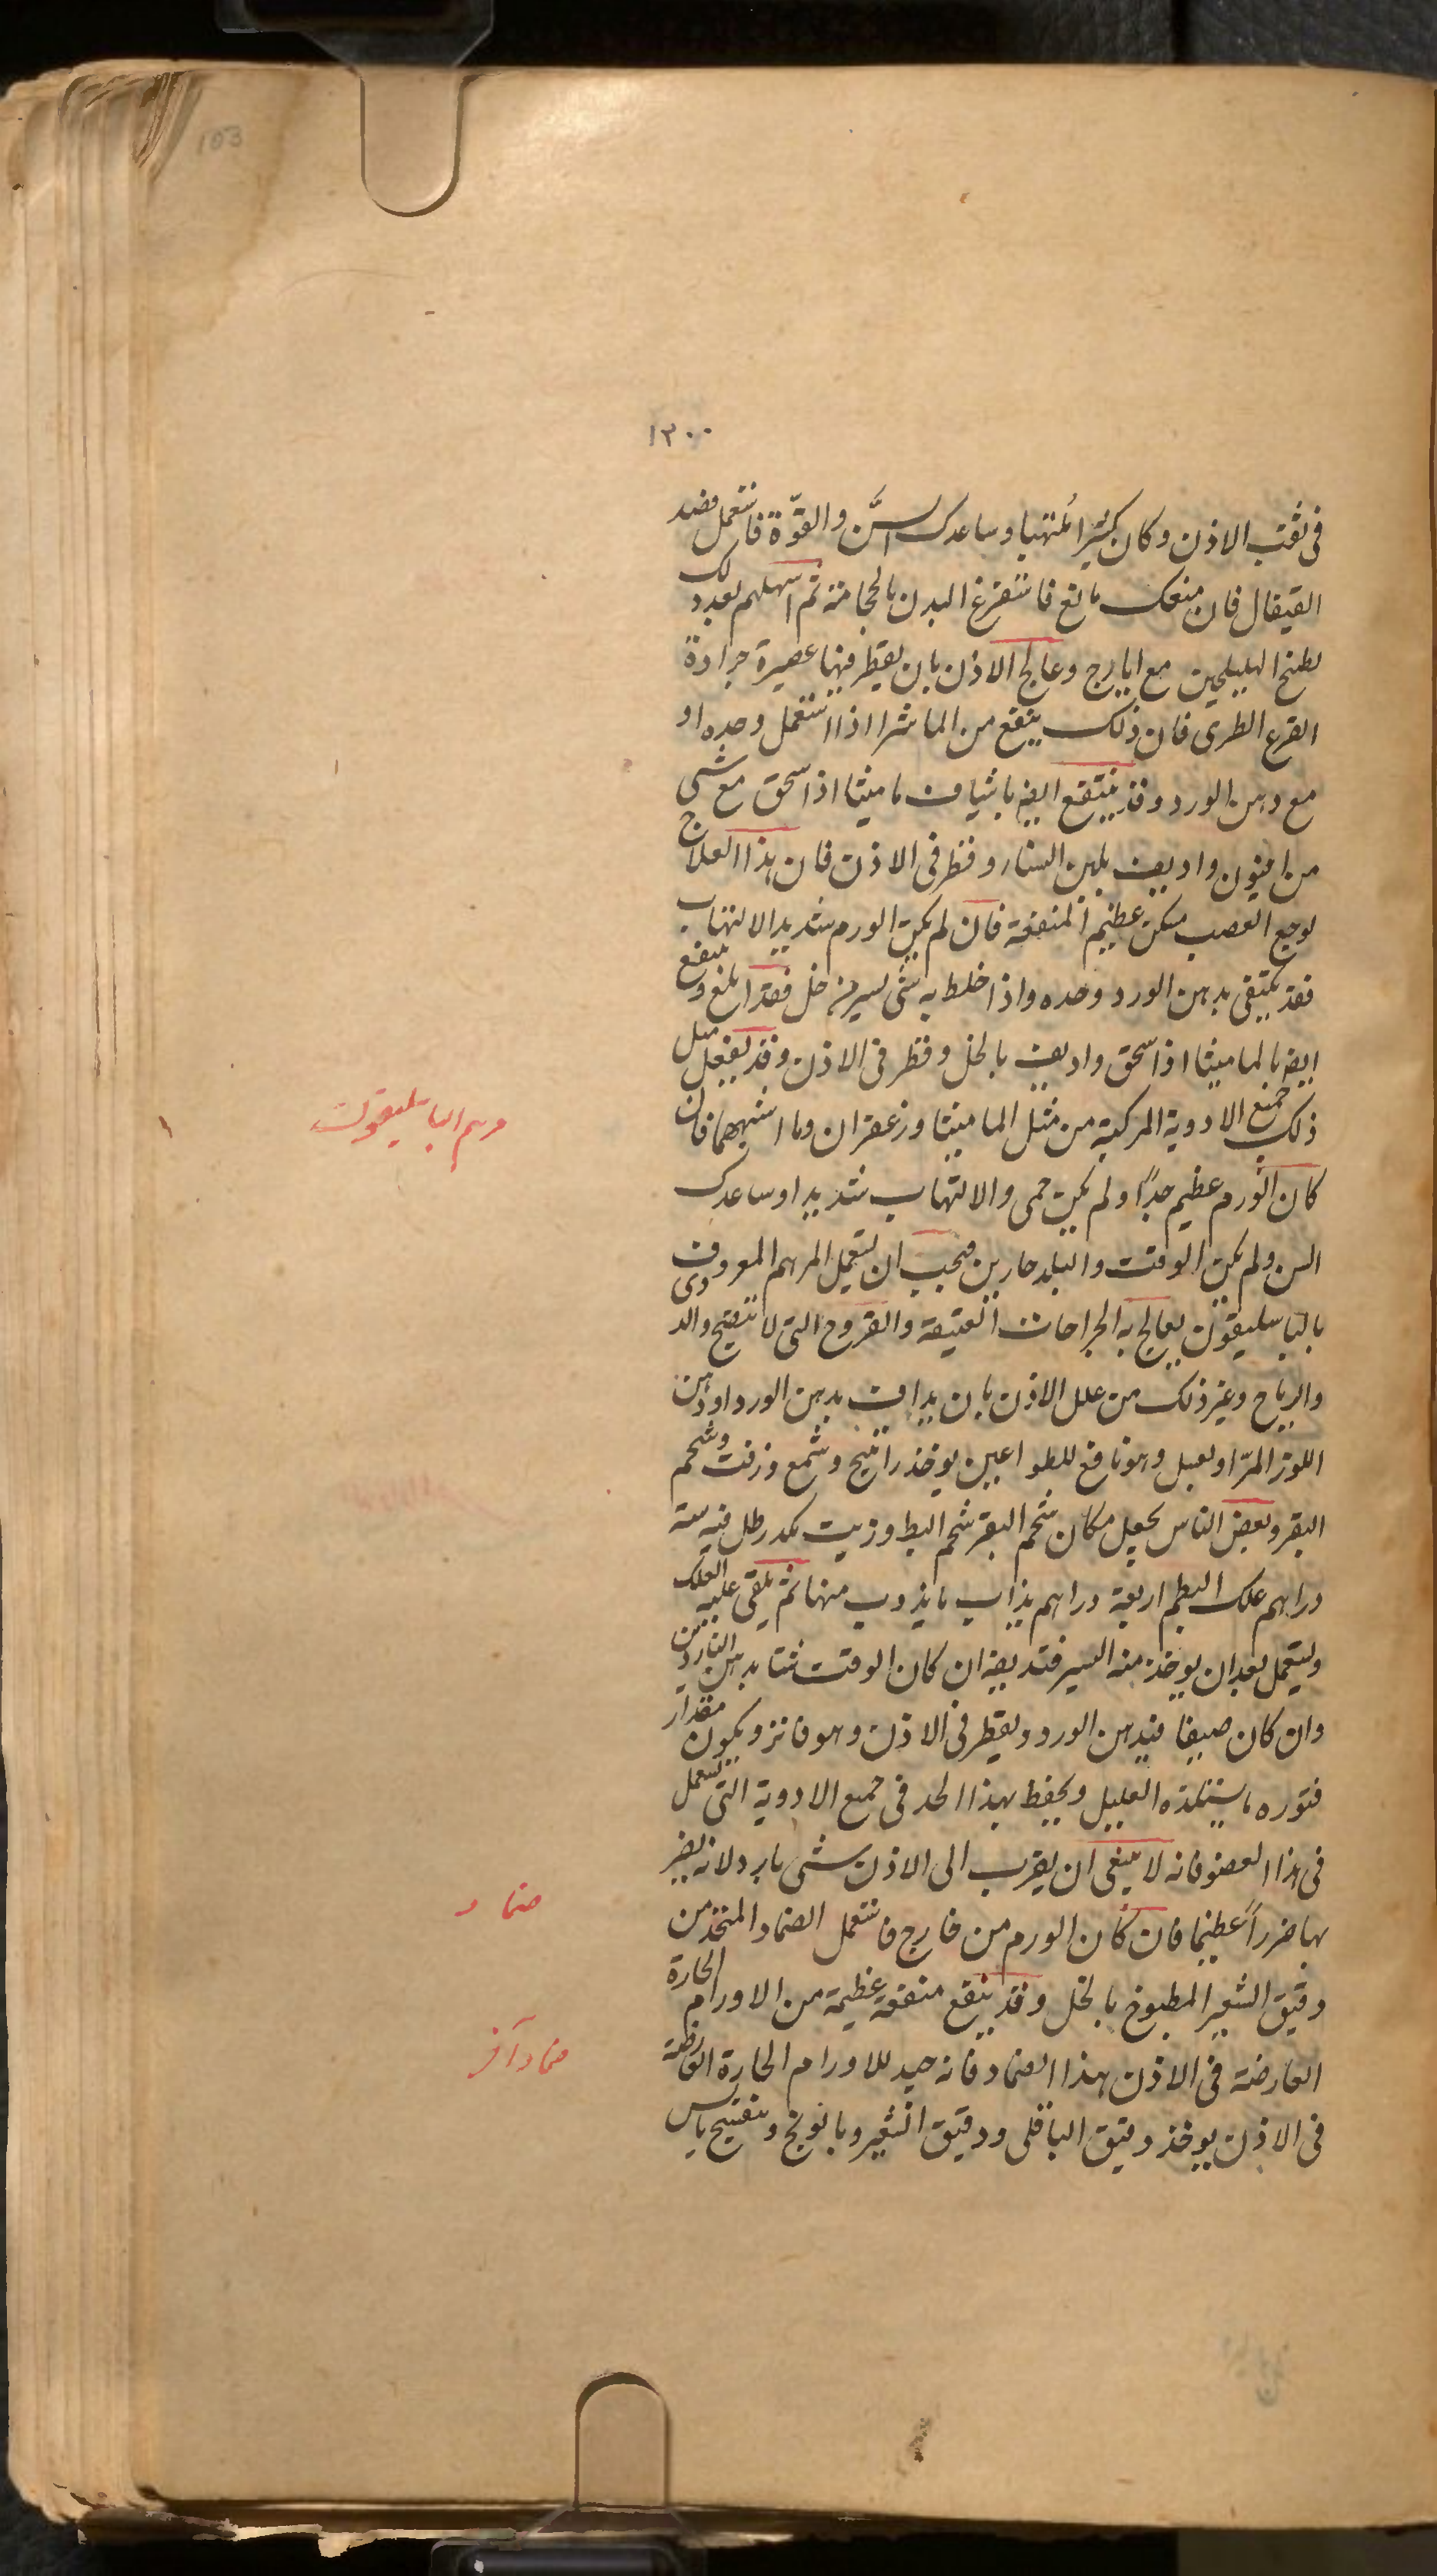 103
١٣٠٠
فى ثقب الاذن وكان كثيرا مُلتهبا وساعدك السّن والقوّة فاستعمل فصد
القيفال فان منعك مانع فاستفرغ البدن بالحجامة ثم اسهلهم بعد ذلك
بطبخ الهليلجين مع ايارج وعالج الاذن بان يقطر فيها عصيرة جرادة
القرع الطرى فان ذلك ينفع من الماشرا اذا استعمل وحده او
مع دهن الورد وقد ينتفع ايضا بشياف ماميثا اذا سحق مع شى
من افيون واديف بلبن النساء وقطر فى الاذن فان هذا العلاج
لوجع العصب مسكن عظيم المنفعة فان لم يكن الورم شديد الالتهاب
فقد يكتفى بدهن الورد وحده واذا خلط به شى يسير من خل فقد ابلغ وينفع
ايضا بالماميثا اذا سحق واديف بالخل وقطر فى الاذن وقد يفعل مثل
ذلك جميع الادوية المركبة من مثل الماميثا وزعفران وما اشبههما فان
كان الورم عظيم جدًا ولم يكن حمى والالتهاب شديدا وساعدك
السن ولم يكن الوقت والبلد حارين فيجب ان يستعمل المرهم المعروف
بالباسليقون يعالج به الجراحات العتيقة والقروح التى لا تنضج والدوى
والرياح وغير ذلك من علل الاذن بان يداف بدهن الورد او دهن
اللوز المرّ او بعسل وهو نافع للطواعين يوخذ راتينج وشمع وزفت وشحم
البقر وبعض الناس يجعل مكان شحم البقر شحم البط وزيت مكد رطل فيه ستة
دراهم علك البطم اربعة دراهم يذاب ما يذوب منها ثم يلقى عليه العلك
ويستعمل بعد ان يوخذ منه اليسير فتديفه ان كان الوقت شتا بدهن الناردين
وان كان صيفا فبدهن الورد ويقطر فى الاذن وهو فاتر ويكون مقدار
فتوره ما يستلذه العليل ويحفظ بهذا الحد فى جميع الادوية التى تستعمل
فى هذا العضو فانه لا ينبغى ان يقرب الى الاذن شى بارد لانه يضر
بها ضرراً عظيما فان كان الورم من خارج فاستعمل الضماد المتخذ من
دقيق الشعير المطبوخ بالخل وقد ينفع منفعة عظيمة من الاورام الحارة
العارضة فى الاذن بهذا الضماد فانه جيد للاورام الحارة
فى الاذن يوخذ دقيق الباقلى ودقيق الشعير وبابونج وبنفسج يابس
مرهم الباسليقون
ضماد
ضماد آخر